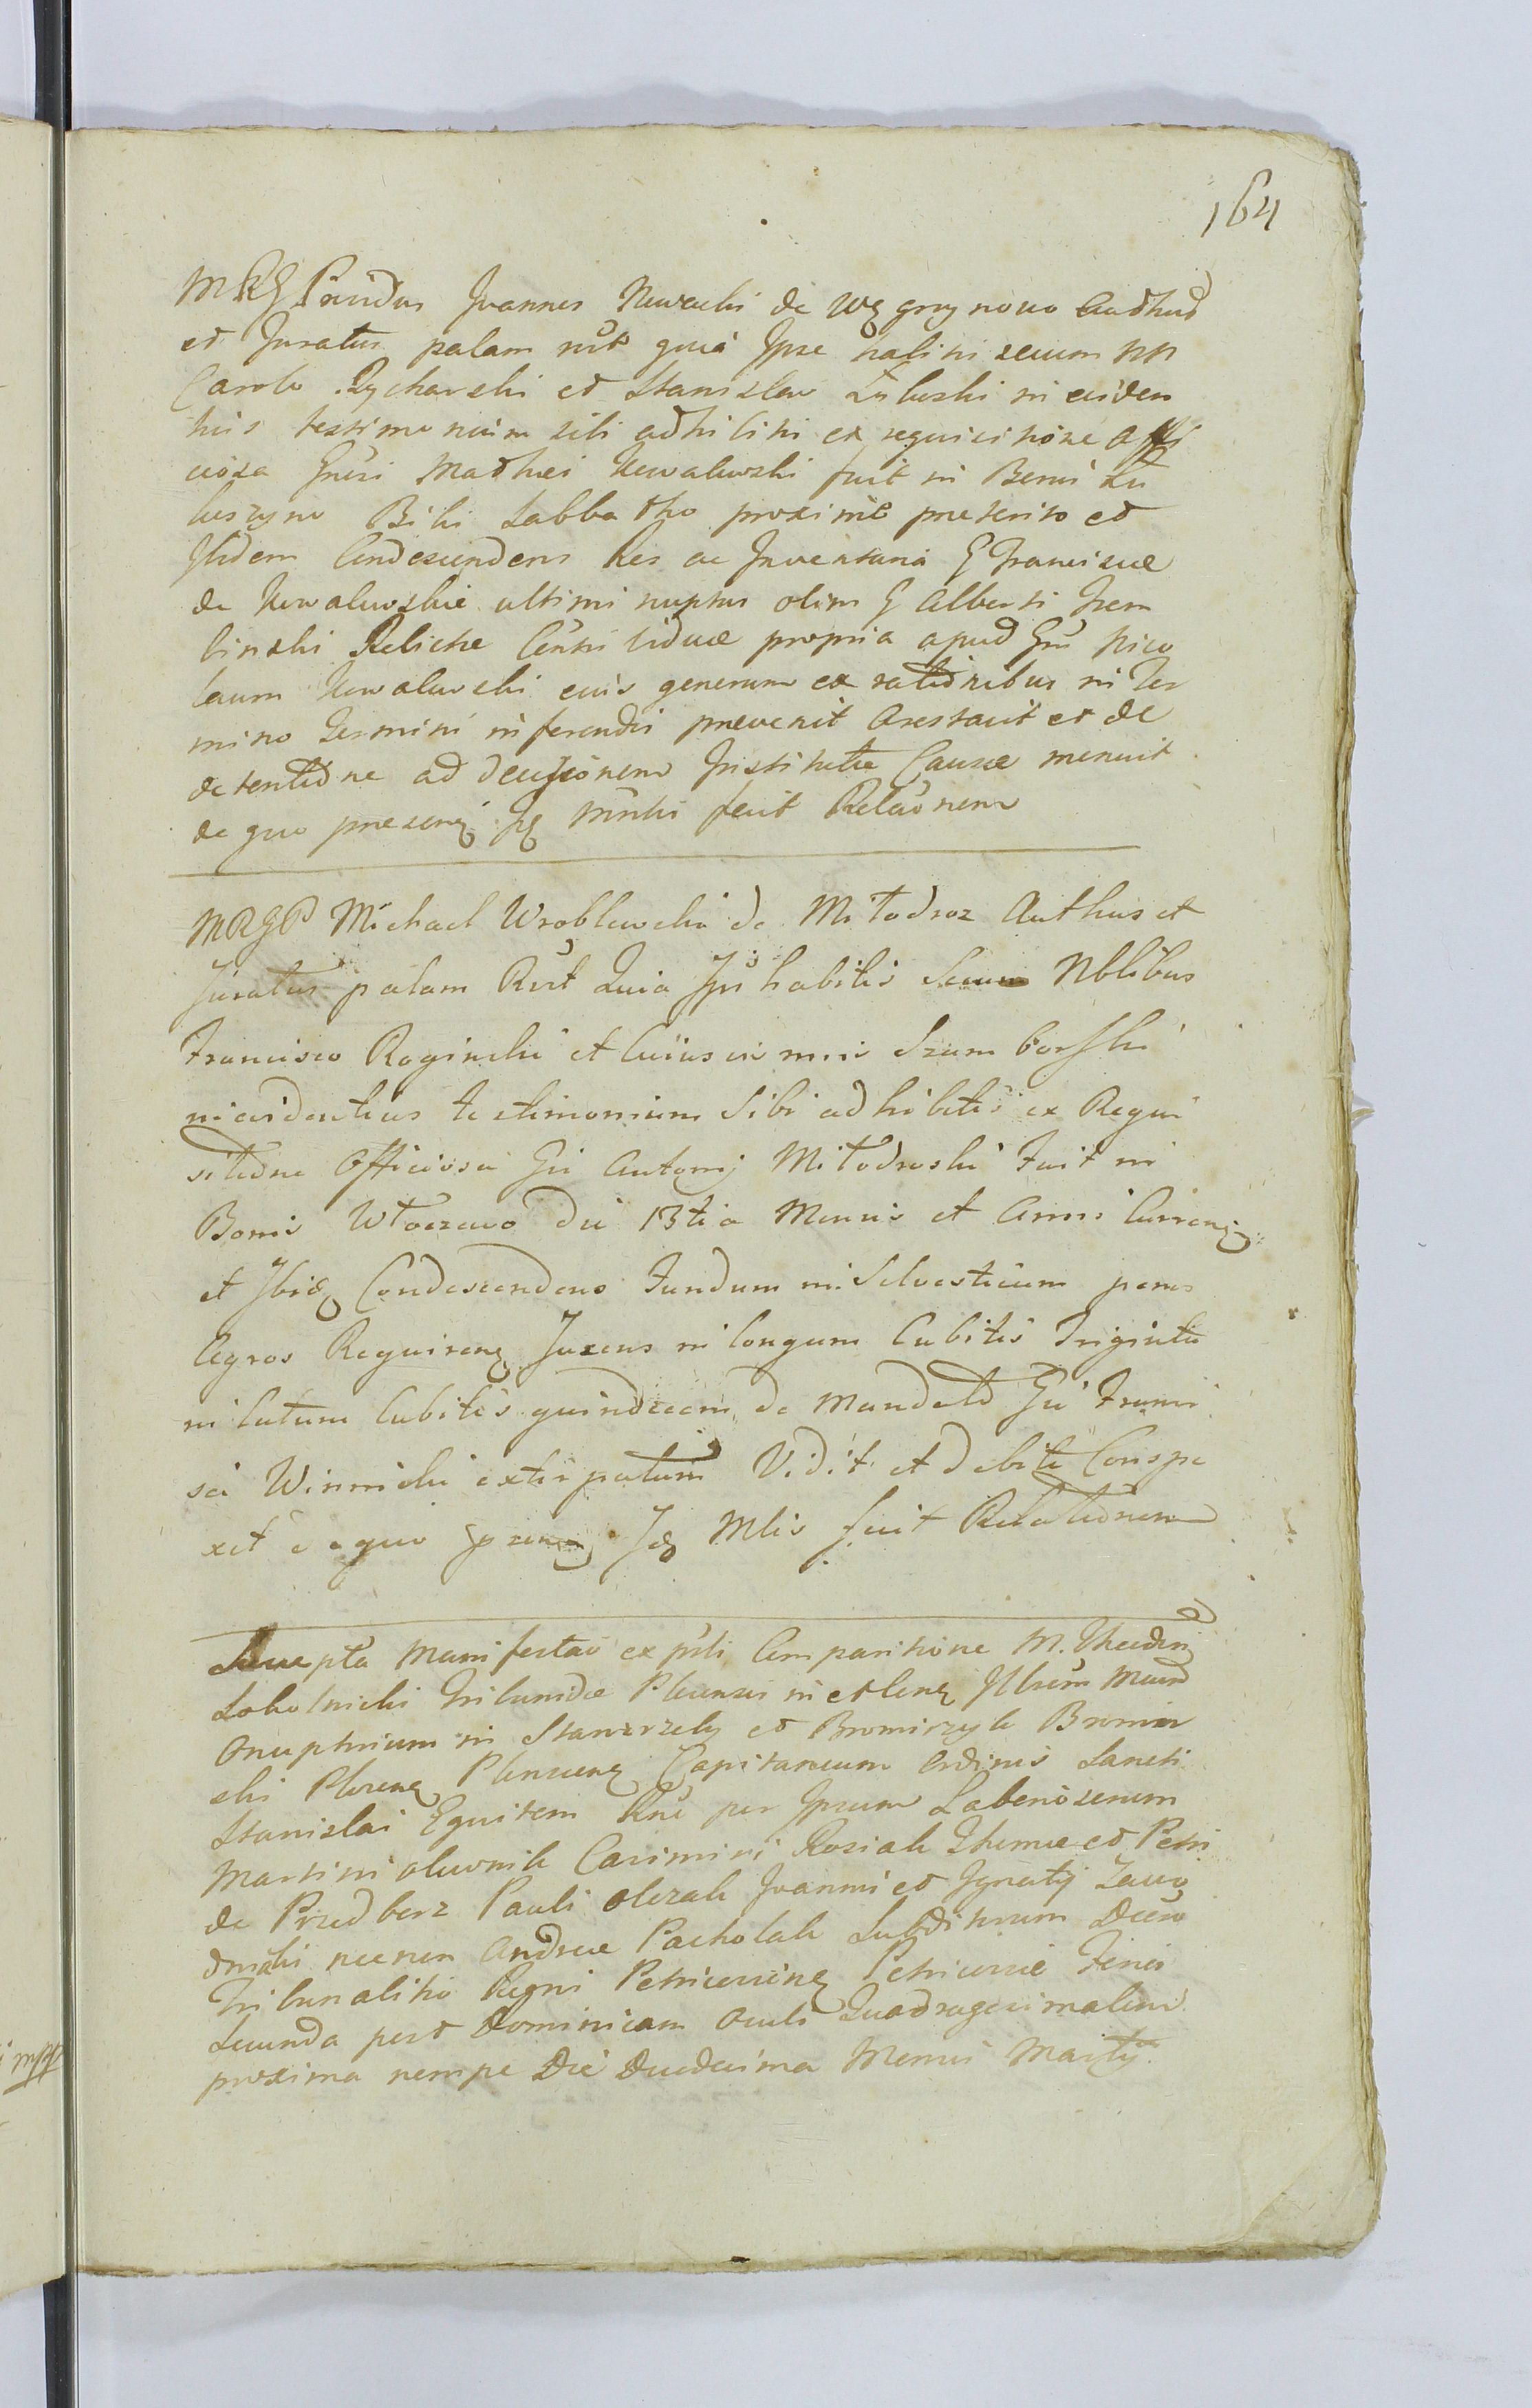 164
MRG Prvidus Joannes Nowacki de Węgrzynowo Authus
et Juratus palam rūt quia Ipse habitis secum NN
Carolo Rycharski et Stanislao Zuluski in eviden
tius testimonium sibi adhibitis ex requisitione offi
ciosa Gnēsi Mathei Kowalewski fuit in Bonis
Bihi Sabbatho proxime preterito et
Ibidem Condescendens Res ac Inventaria G Franciscæ
de Kowalewskie ultimi nuptus olim G Alberti Trem
binski Relictæ Consti Viduæ propria apud Gnū Nico
laum Kowalewski eius generum ex rationibus in Ter
mino Termini inferendis prevenit arestavit et de
detentione ad decisionem Institutæ Causæ monuit
de quo presenq Jq Mnstri fecit Relaōnem
MRGP Michael Wroblewski de Miłodroz Authus et
Juratus palam Rūt Quia Ips habitis Secum Nblibus
Francisco Roginski et Szamborski
in evidentius testimonium Sibi adhibitis ex Requi
sitione Officiosa Gi Antonij Miłodroski Fuit in
Bonis Włoczewo die 13tia Mensis et Anni Currenq
et Ibidq Condescendens Fundum in Silvesticum penes
Agros Requirenq Jacens in longum Cubitis Triginta
in latum Cubitis quindecem de Mandato Gi Franci
sci Winnicki extirpatum Vidit et debite Conspe
xit de quo prenq Jdq Mlis fecit Relationem
Suscepta Manifestaō ex pīsli Comparitione M. Theodori
Sobolnicki Tribunidæ Plocensis in Illrem Magd
Onuphrium in Starorzeby et Bromirzyk Bromir
ski Plocenq Plonscenq Capitaneum Ordinis Sancti
Stanislai Equitem Rnē per Ipsum Laboriosorum
Martini olownik Casimiri Koziak Thomæ et Petri
de Przedborz Pauli Olczak Joannis et Ignatij Zawo
dnicki necnon Andreæ Pacholak Subditorum Decō
Tribunalitio Regni Petricovienq Petricoviæ Feria
Secunda post Dominicam Oculi Quadragesimalem
proxima nempe Die Duodecima Mensis Martij